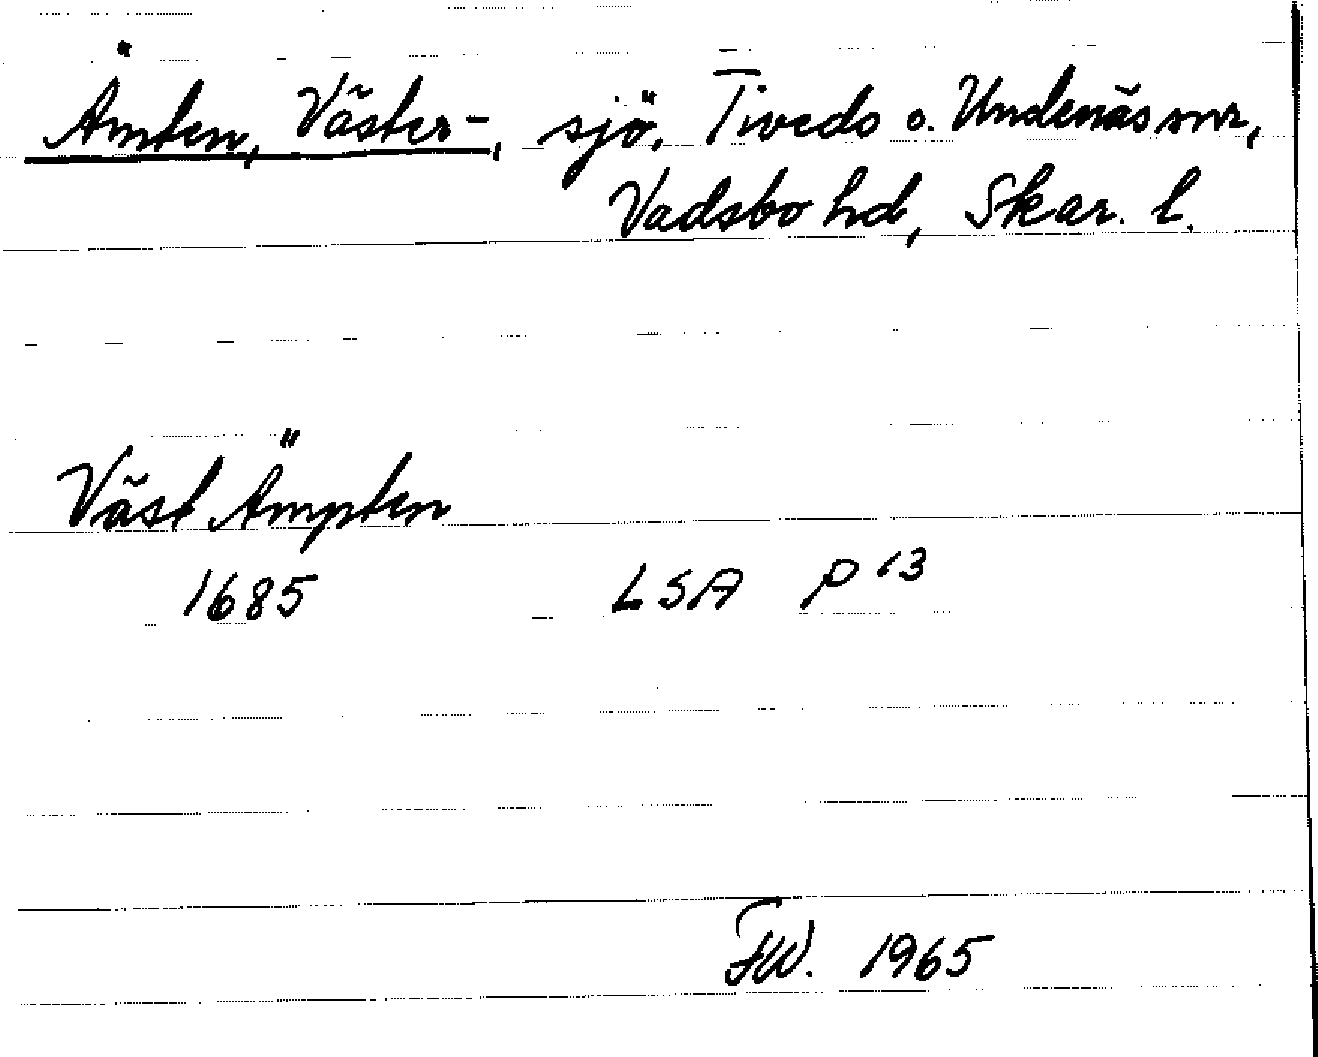 Åmten, Väster-, sjö, Tiveds o. Undenäs snr,
Vadsbo hd, Skar. l.
Väst Ämpten
1685 LSA P 13
FW. 1965